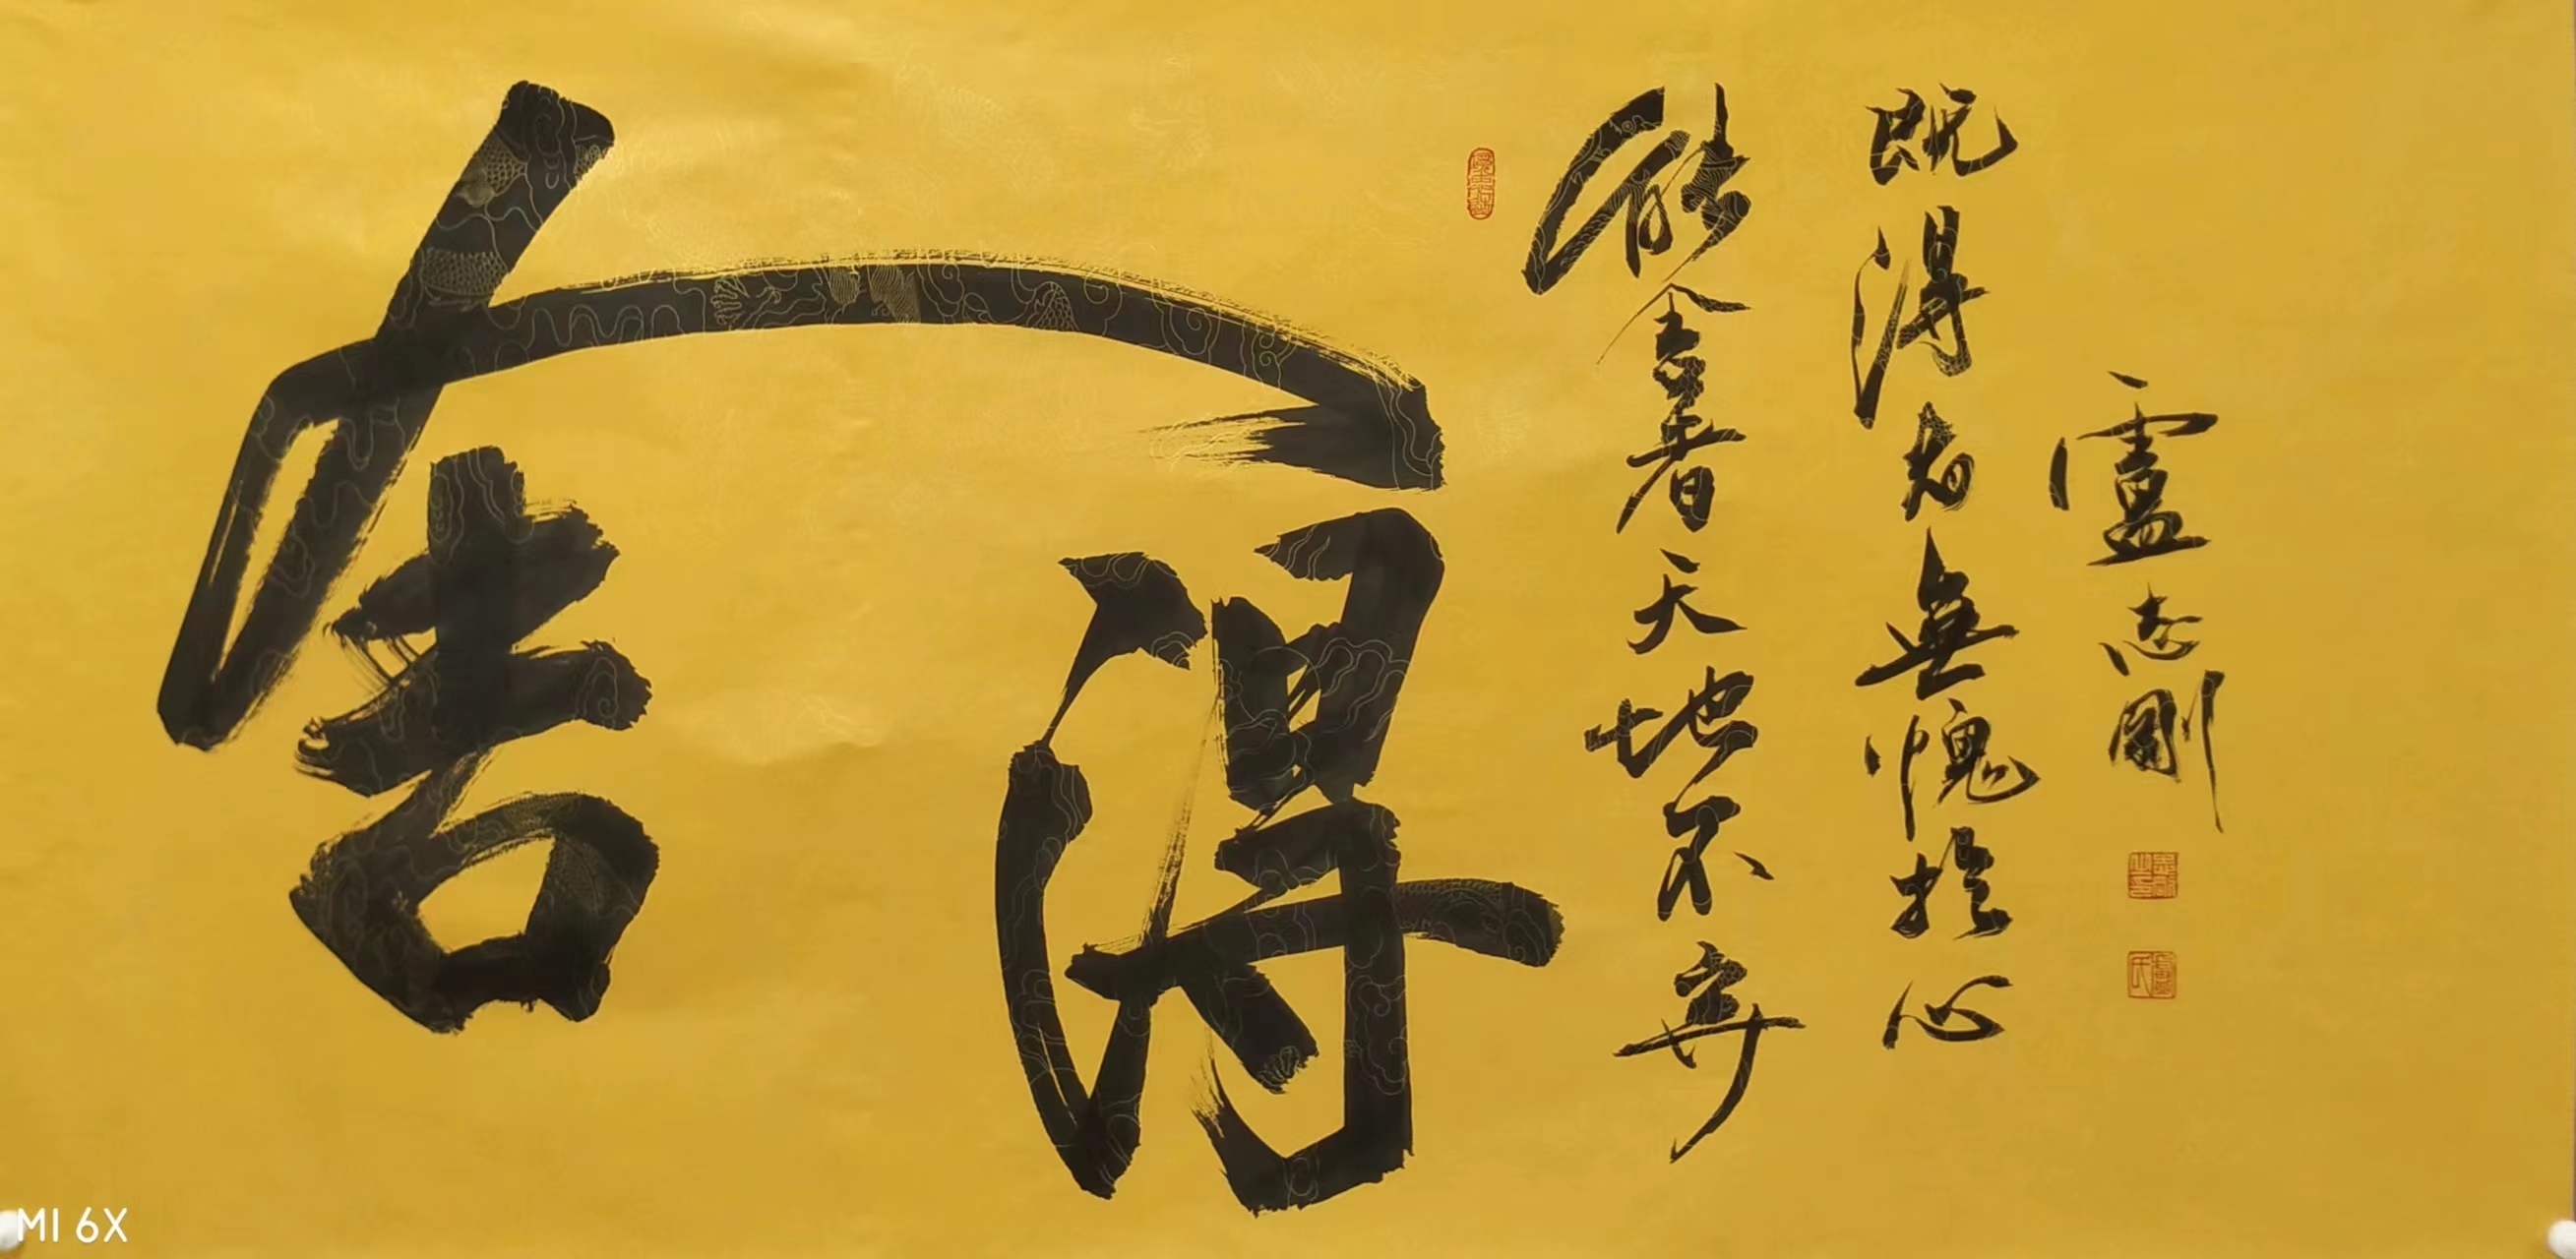 舍得
能舍者天地不弃
既得者無愧於心
盧志剛
MI 6X